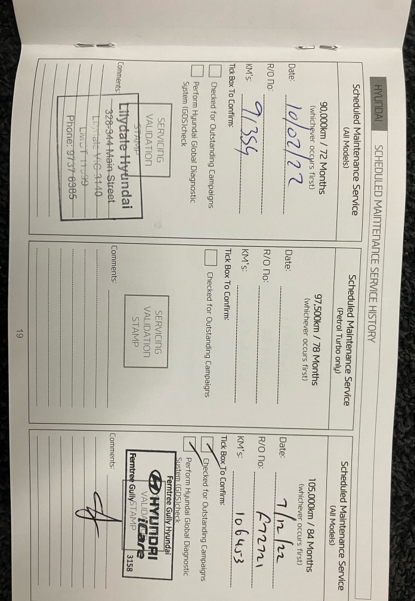 HYUNDAI SCHEDULED MAINTENANCE SERVICE HISTORY
Scheduled Maintenance Service
(All Models)
90,000km / 72 Months
(whichever occurs first)
Date: 10/02/22
R/O No:
KM's: 91354
Tick Box To Confirm:
Checked for Outstanding Campaigns
Perform Hyundai Global Diagnostic
System (GDS)check
SERVICING
VALIDATION
STAMP
Comments:
Lilydale Hyundai
328-344 Main Street
Lilydale VIC 3140
Phone: 9737 6385
Scheduled Maintenance Service
(Petrol Turbo only)
97,500km / 78 Months
(whichever occurs first)
Date:
R/O No:
KM's:
Tick Box To Confirm:
Checked for Outstanding Campaigns
SERVICING
VALIDATION
STAMP
Comments:
Scheduled Maintenance Service
(All Models)
105,000km / 84 Months
(whichever occurs first)
Date: 7/12/22
R/O No:
KM's: 106453
Tick Box To Confirm:
Checked for Outstanding Campaigns
Perform Hyundai Global Diagnostic
System (GDS)check
Ferntree Gully Hyundai
HYUNDAI
iCare
Ferntree Gully STAMP 3158
Comments:
19